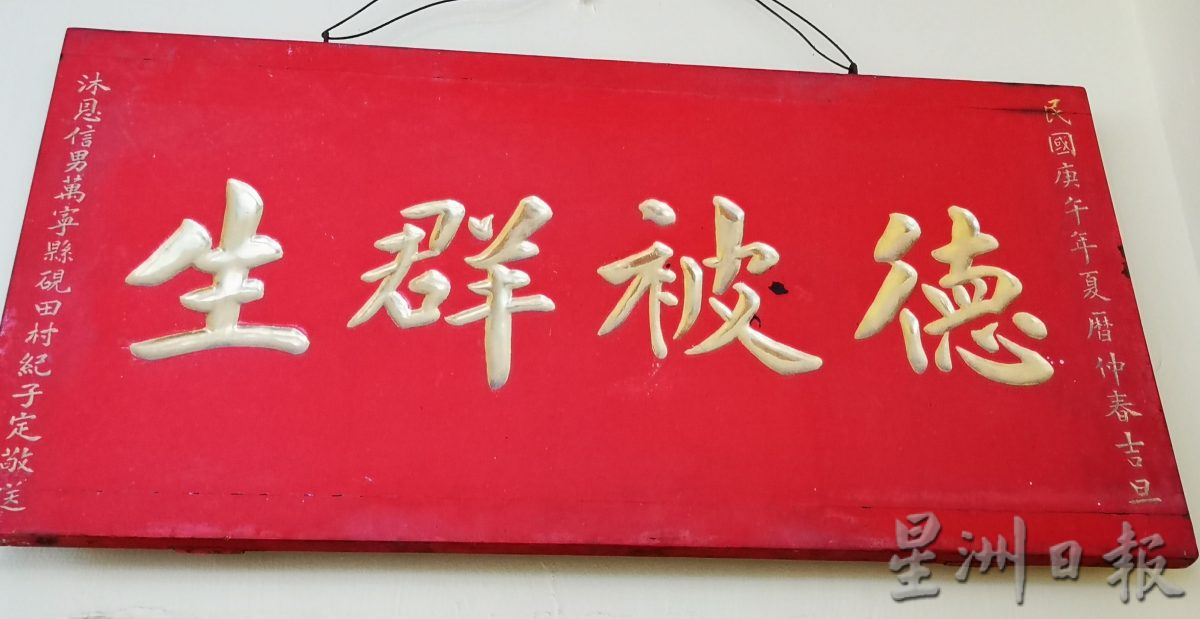 民國庚午年夏曆仲春吉旦
德被群生
沐恩信男萬寧縣硯田村紀子定敬送
星洲日報